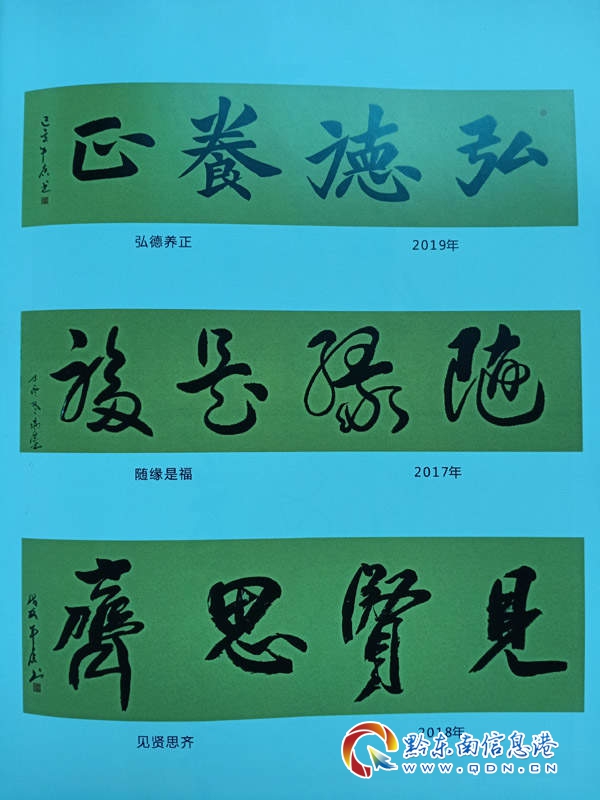 弘德養正
弘德养正 2019年
随縁是福
随缘是福 2017年
見賢思齊
见贤思齐 2018年
黔东南信息港
WWW.QDN.CN